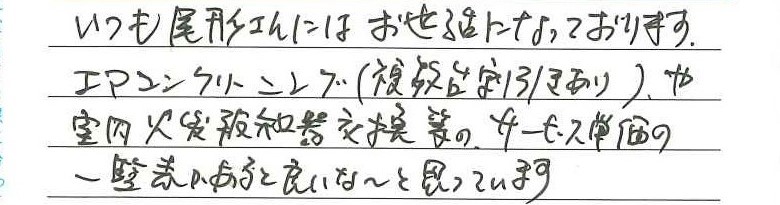 いつも尾形さんにはお世話になっております。
エアコンクリーニング(複数台割引きあり)、や
室内火災報知器交換等の、サービス単価の
一覧表があると良いな〜と思っています